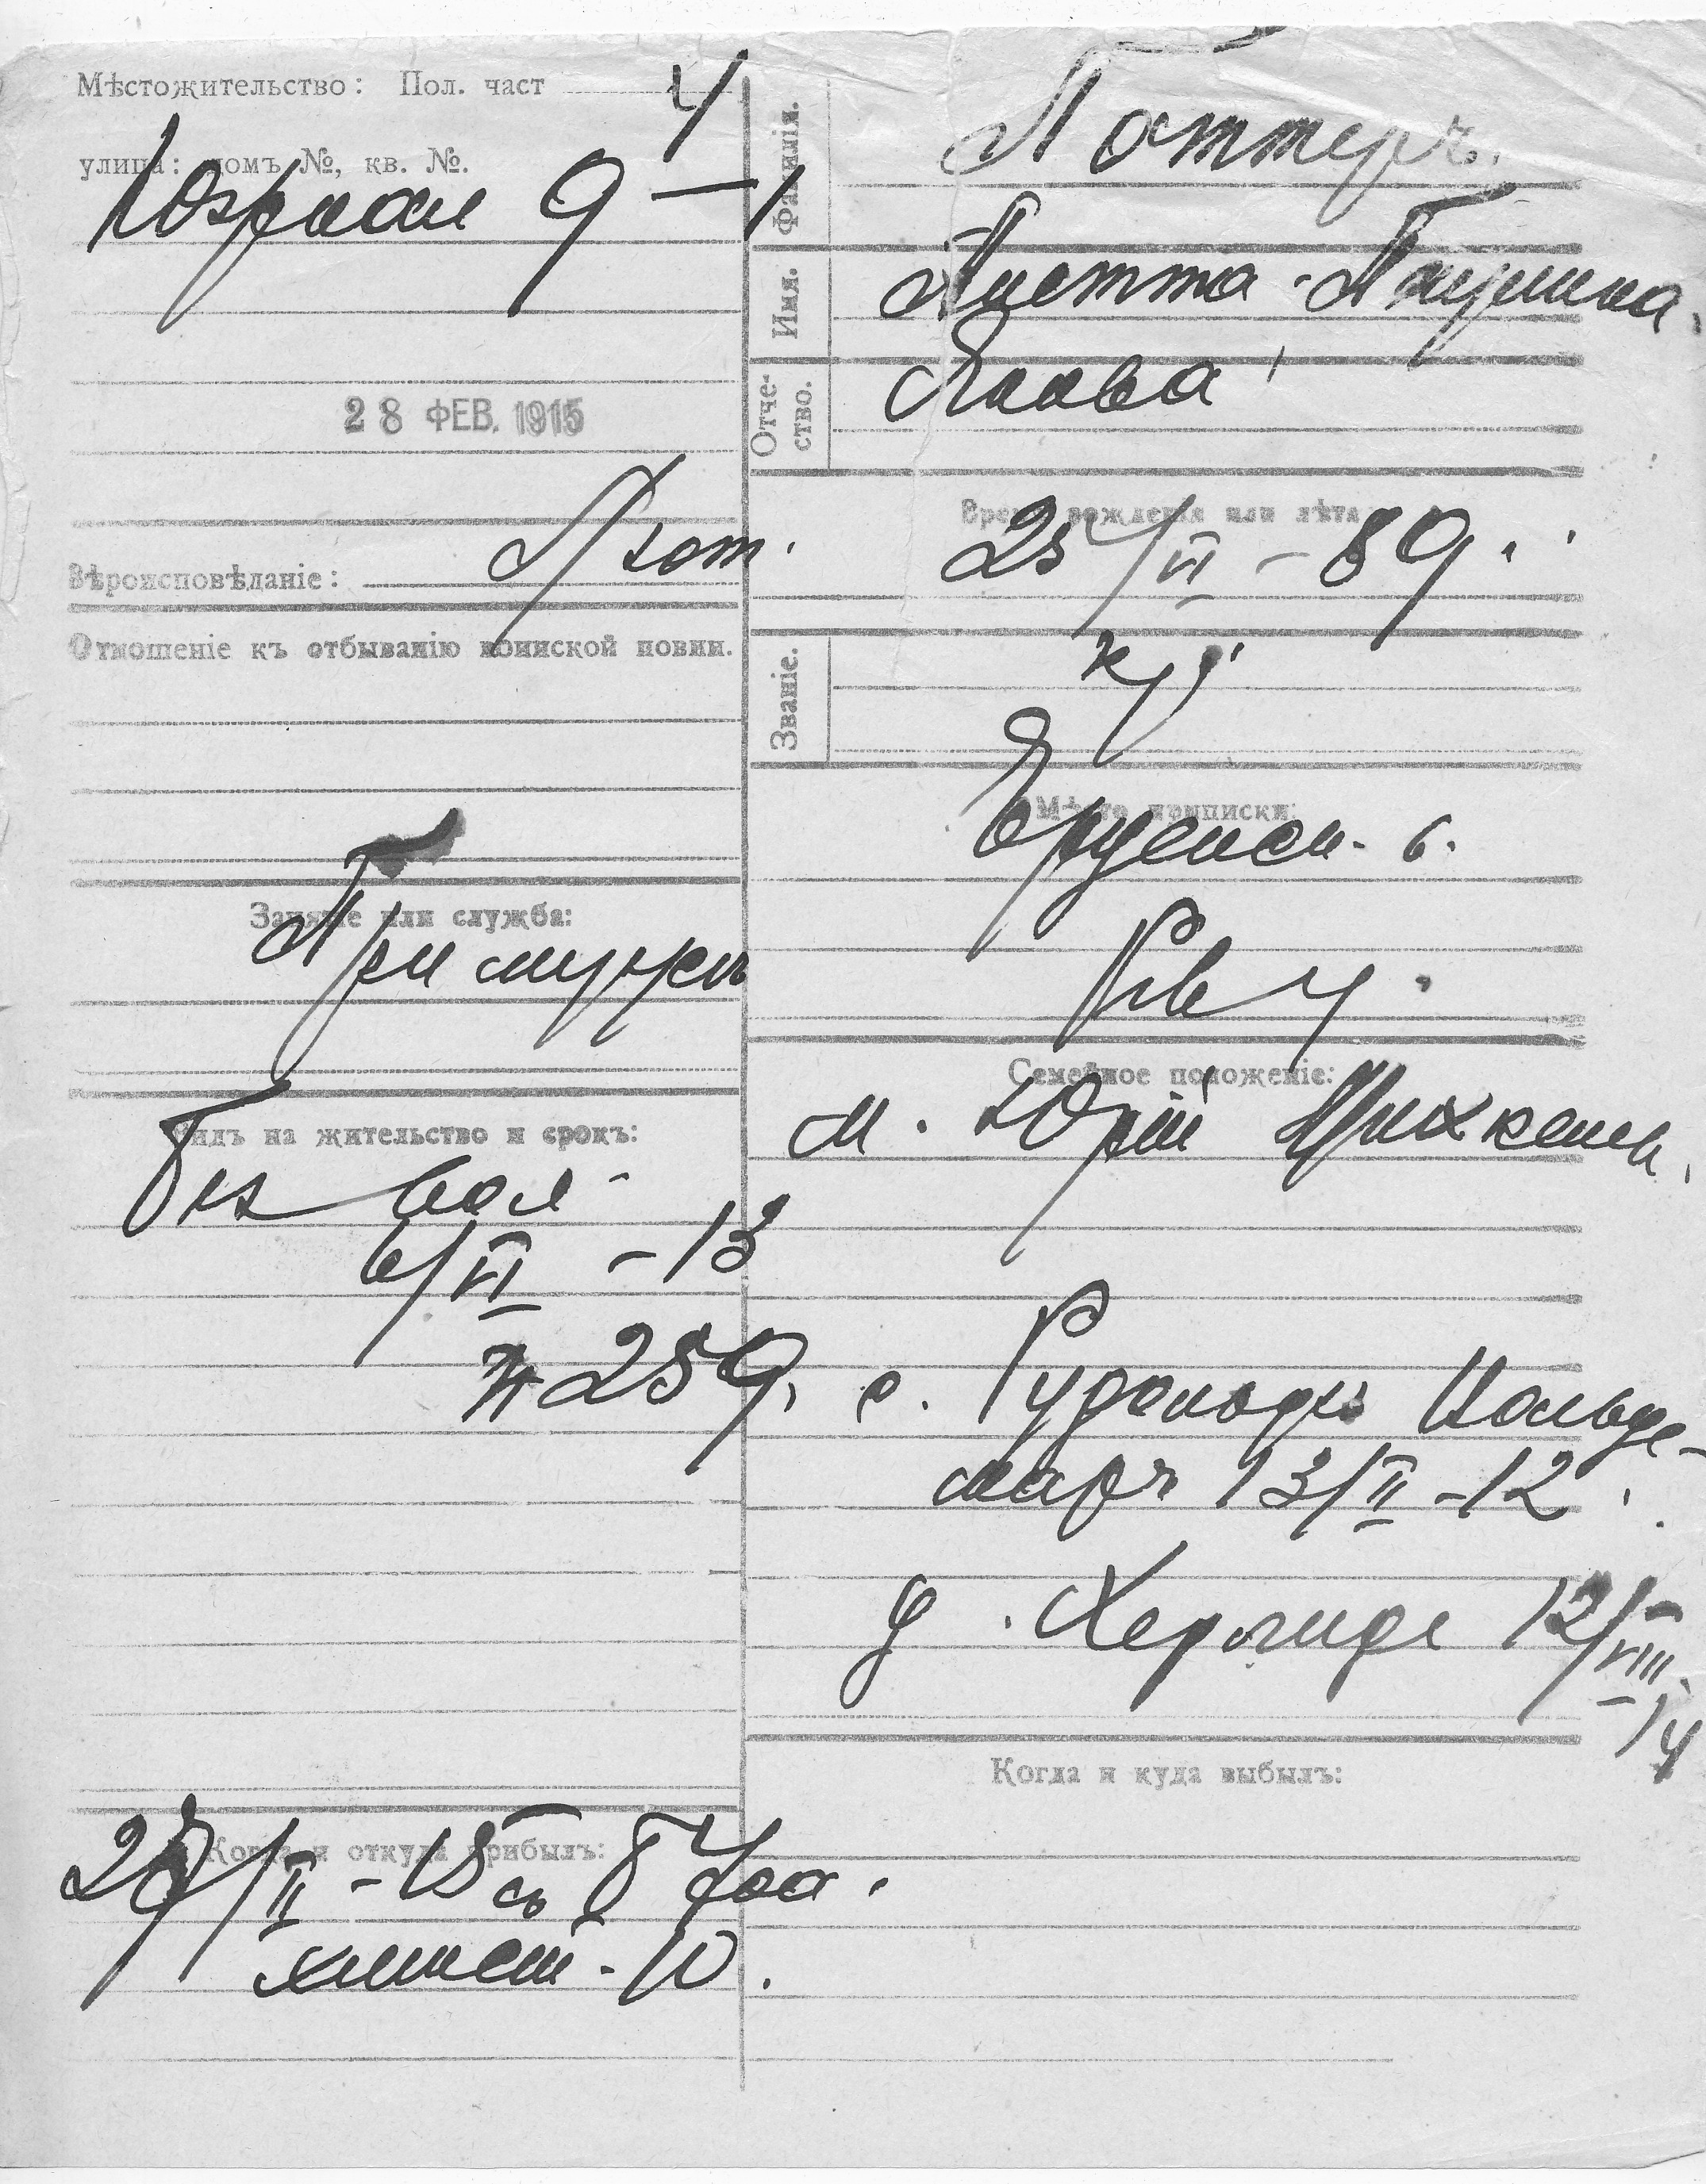 Мѣстожительство: Пол. част 4
улица: домъ №, кв. №.
9 — 1
28 ФЕВ. 1915
Вѣроисповѣданіе:
Отношеніе къ отбыванію воинской повин.
Занятіе или служба:
При мужѣ
Видъ на жительство и срокъ:
Без
6/VI - 13
№ 259.
Когда и откуда прибылъ:
27/II - 15 съ
10.
Фамилія.
Поттеръ.
Имя.
Анетта - Паулина.
Отчество.
Яковa
Время рожденія или лѣта
25/VI - 89.
Званіе.
кр.
Мѣсто приписки:
Семейное положеніе:
м. Юрій
с. Рудольфъ Вольде-
маръ 13/II - 12.
д. Херлинде 12/VIII
14
Когда и куда выбылъ: